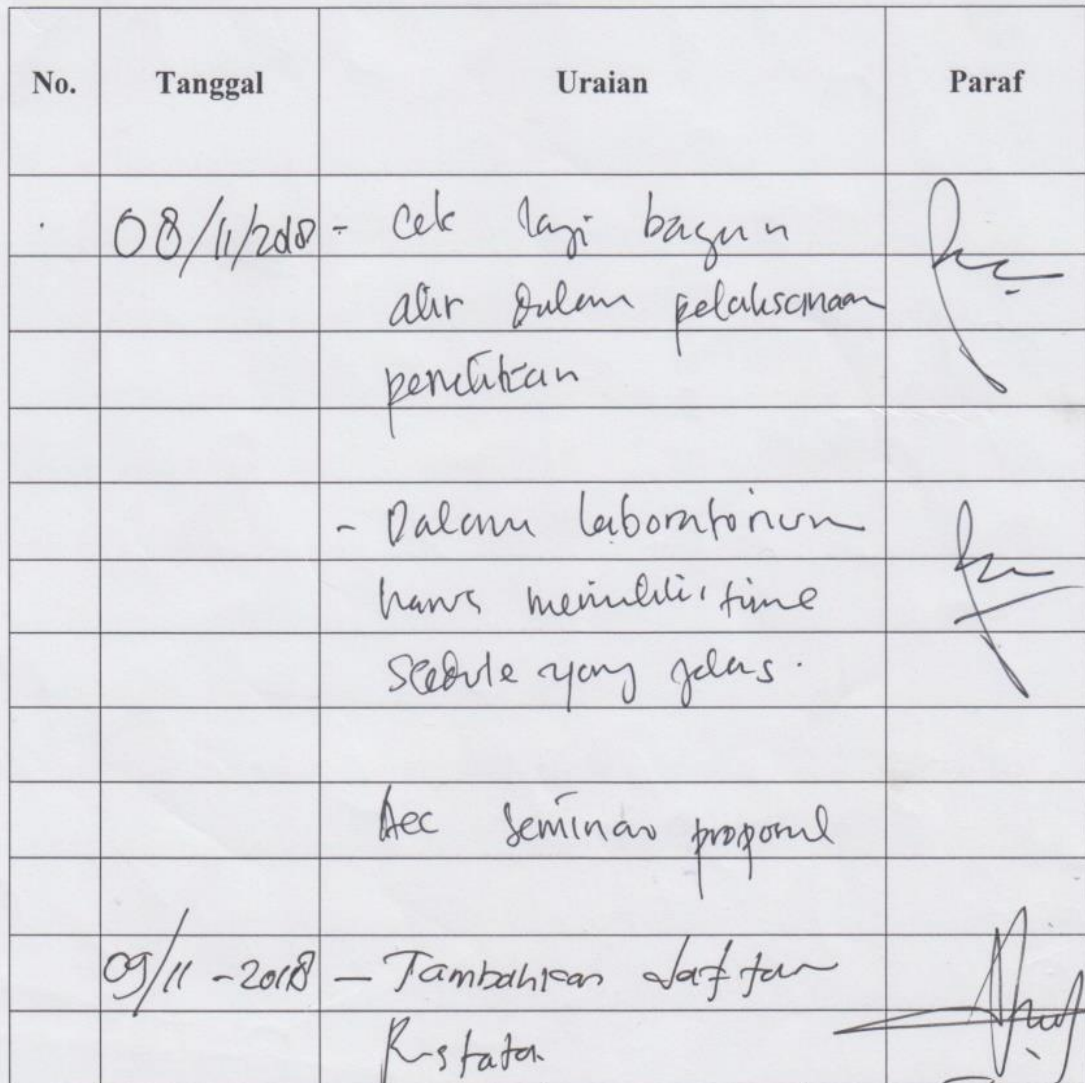 No. Tanggal Uraian Paraf
08/11/2018 - Cek lagi bagan
alir dalam pelaksanaan
penelitian
- Dalam laboratorium
harus memiliki time
scedule yang jelas.
Acc seminar proposal
09/11-2018 - Tambahkan daftar